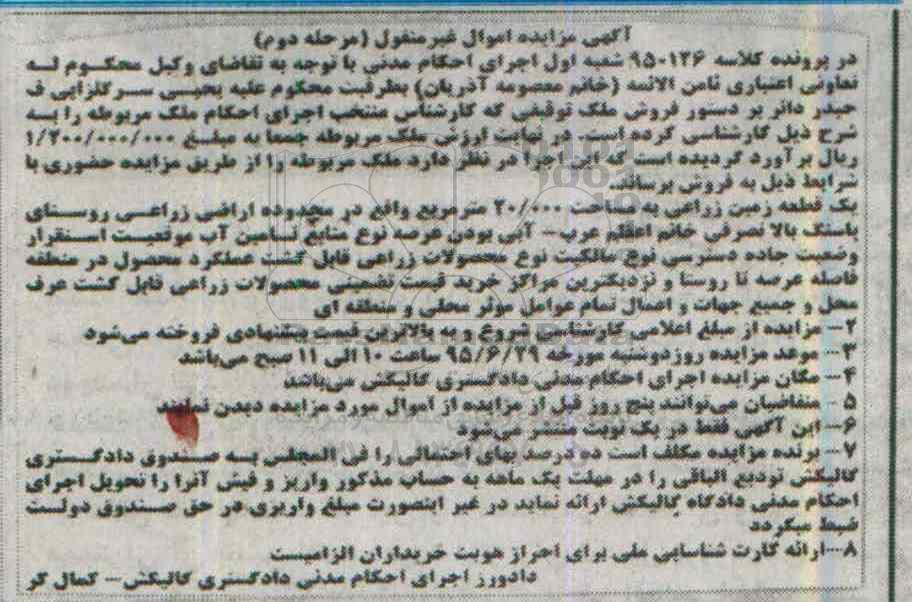 آگهی مزایده اموال غیرمنقول (مرحله دوم)
در پرونده کلاسه ۱۳۶-۹۵ شعبه اول اجرای احکام مدنی با توجه به تقاضای وکیل محکوم له
تعاونی اعتباری ثامن الائمه (خانم معصومه آذریان) بطرفیت محکوم علیه یحیی سرگلزایی ف
حیدر دائر بر دستور فروش ملک توقیفی که کارشناس منتخب اجرای احکام ملک مربوطه را به
شرح ذیل کارشناسی کرده است. در نهایت ارزش ملک مربوطه جمعا به مبلغ ۱/۲۰۰/۰۰۰/۰۰۰
ریال برآورد گردیده است که این اجرا در نظر دارد ملک مربوطه را از طریق مزایده حضوری با
شرایط ذیل به فروش برساند.
یک قطعه زمین زراعی به مساحت ۲۰/۰۰۰ مترمربع واقع در محدوده اراضی زراعی روستای
پاسنگ بالا تصرفی خانم اعظم عرب- آبی بودن عرصه نوع منابع تامین آب موقعیت استقرار
وضعیت جاده دسترسی نوع مالکیت نوع محصولات زراعی قابل کشت عملکرد محصول در منطقه
فاصله عرصه تا روستا و نزدیکترین مراکز خرید قیمت تضمینی محصولات زراعی قابل کشت عرف
محل و جمیع جهات و اعمال تمام عوامل موثر محلی و منطقه ای
۲- مزایده از مبلغ اعلامی کارشناسی شروع و به بالاترین قیمت پیشنهادی فروخته می‌شود
۳- موعد مزایده روز دوشنبه مورخه ۹۵/۶/۲۹ ساعت ۱۰ الی ۱۱ صبح می‌باشد
۴- مکان مزایده اجرای احکام مدنی دادگستری گالیکش می‌باشد
۵- متقاضیان می‌توانند پنج روز قبل از مزایده از اموال مورد مزایده دیدن نمایند
۶- این آگهی فقط در یک نوبت منتشر می‌شود
۷- برنده مزایده مکلف است ده درصد بهای احتمالی را فی المجلس به صندوق دادگستری
گالیکش تودیع الباقی را در مهلت یک ماهه به حساب مذکور واریز و فیش آنرا را تحویل اجرای
احکام مدنی دادگاه گالیکش ارائه نماید در غیر اینصورت مبلغ واریزی در حق صندوق دولت
ضبط میگردد
۸- ارائه کارت شناسایی ملی برای احراز هویت خریداران الزامیست
دادورز اجرای احکام مدنی دادگستری گالیکش- کمال گر